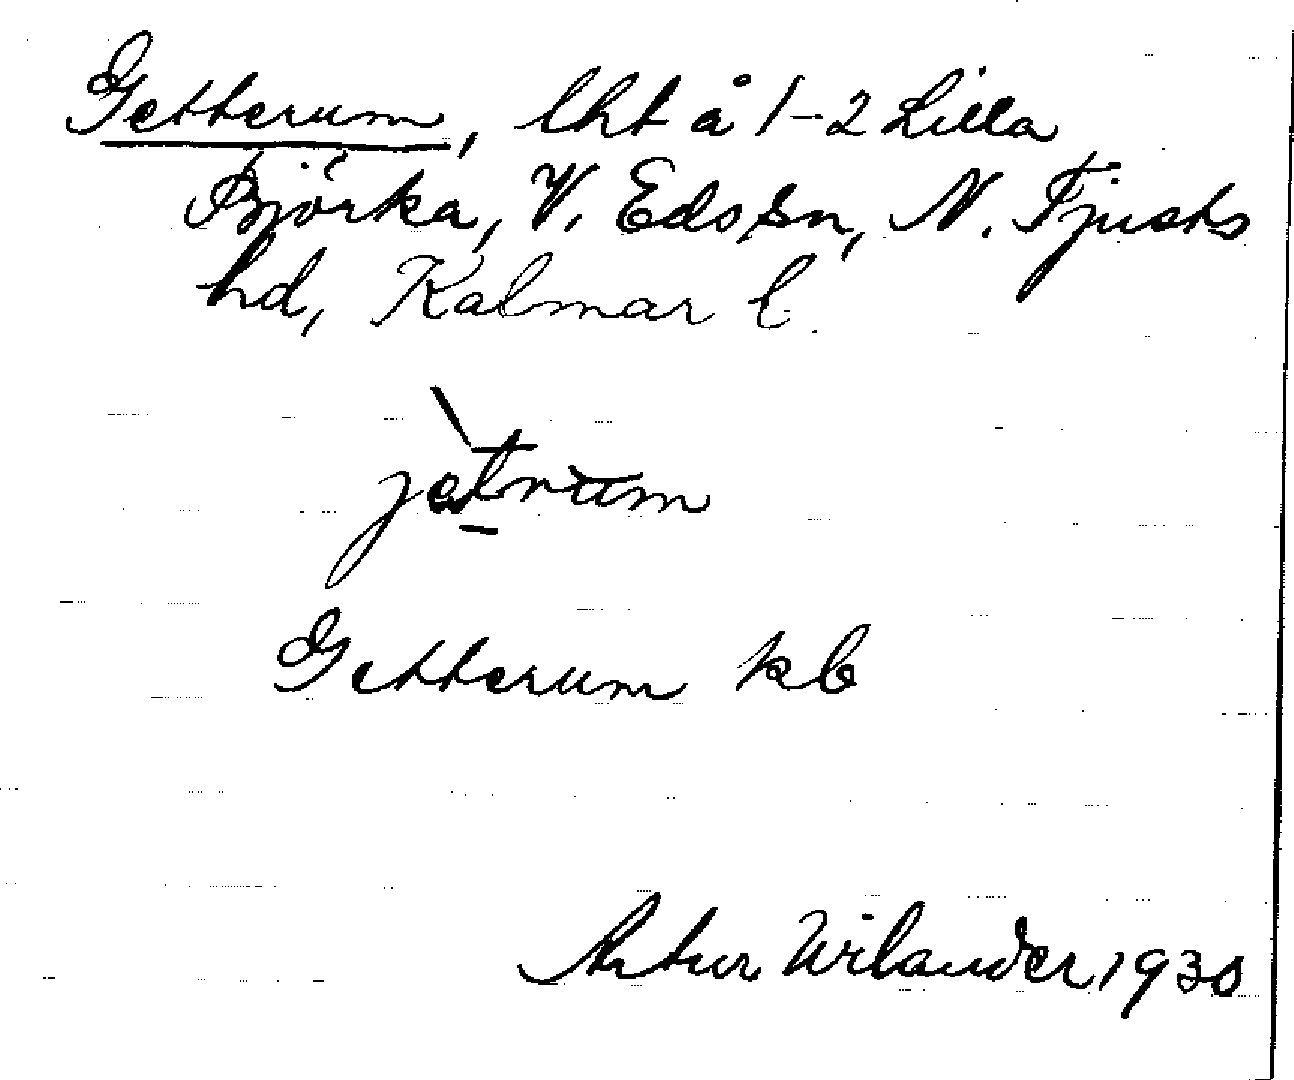 Getterum, lht å 1-2 Lilla
Björka, V. Eds sn, N. Tjusts
hd, Kalmar l.
jàt̲rum
Getterum kb
Artur Wilander 1930